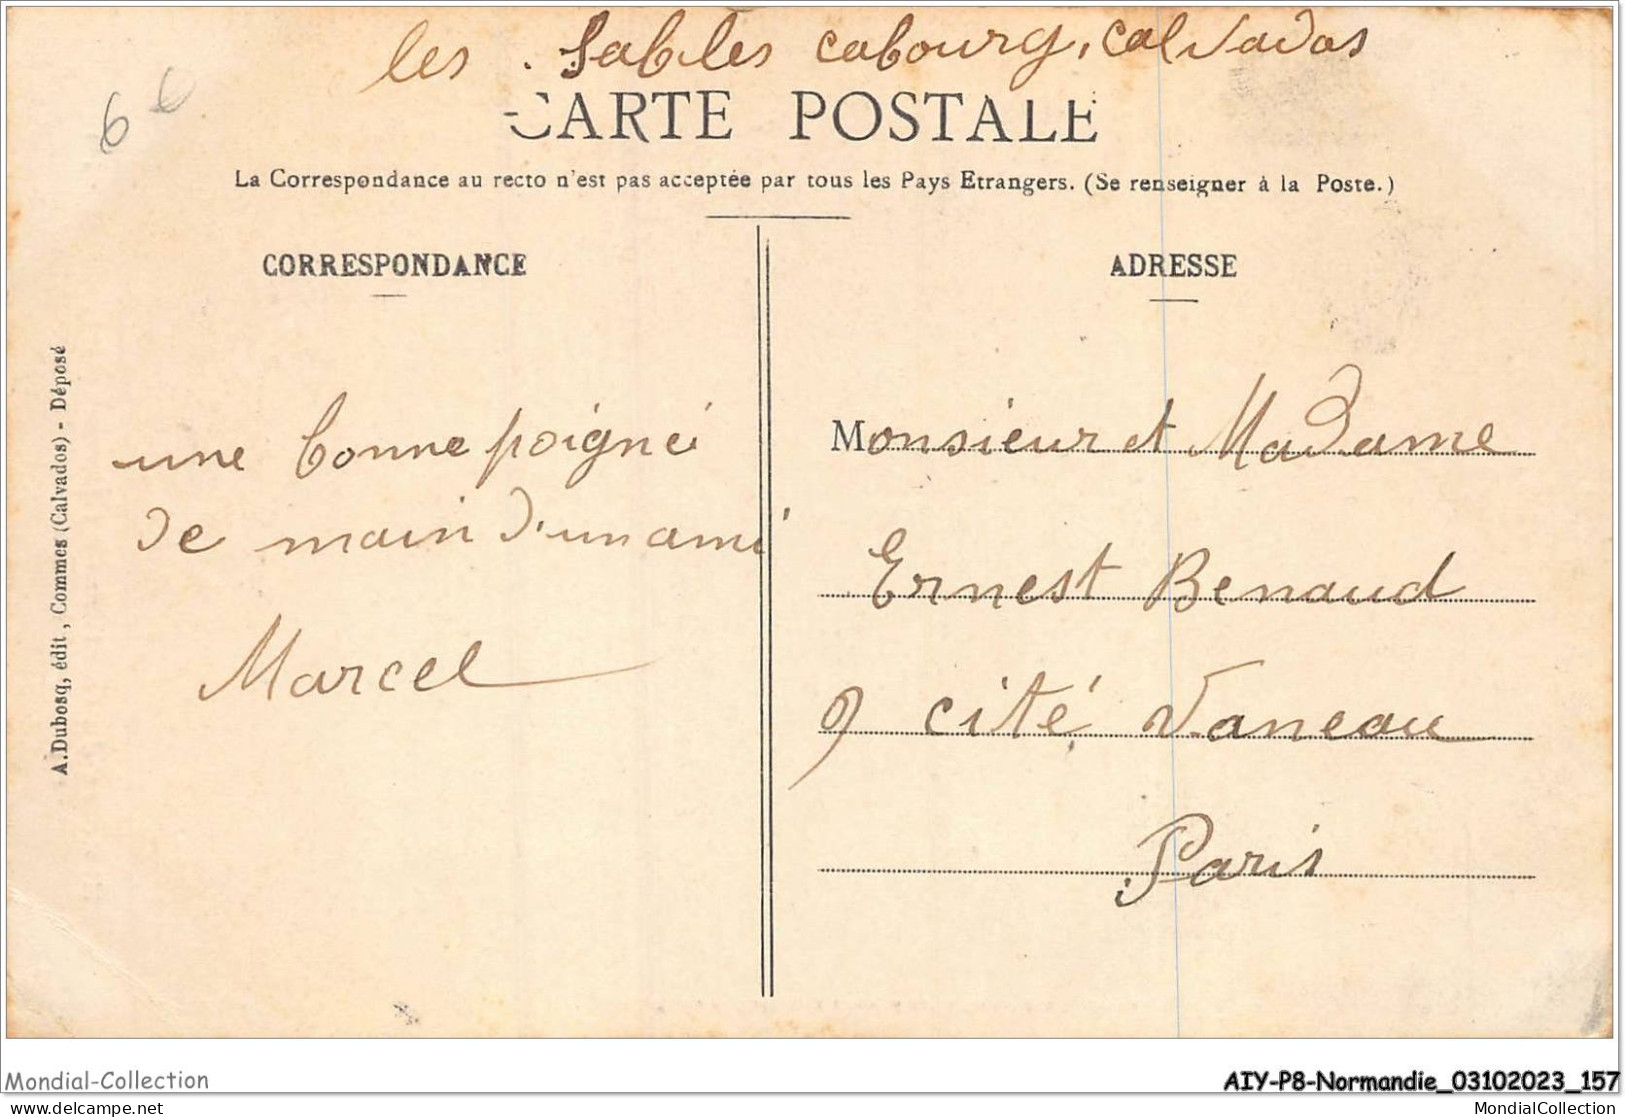 les Sables cabourg, calvados
6€
CARTE POSTALE
La Correspondance au recto n'est pas acceptée par tous les Pays Etrangers. (Se renseigner à la Poste.)
CORRESPONDANCE
une bonne poigné
de main d'un ami
Marcel
ADRESSE
Monsieur et Madame
Ernest Benaud
9 cité Vaneau
Paris
A. Dubosq, édit, Commes (Calvados) - Déposé
Mondial-Collection
AIY-P8-Normandie_03102023_157
www.delcampe.net
MondialCollection